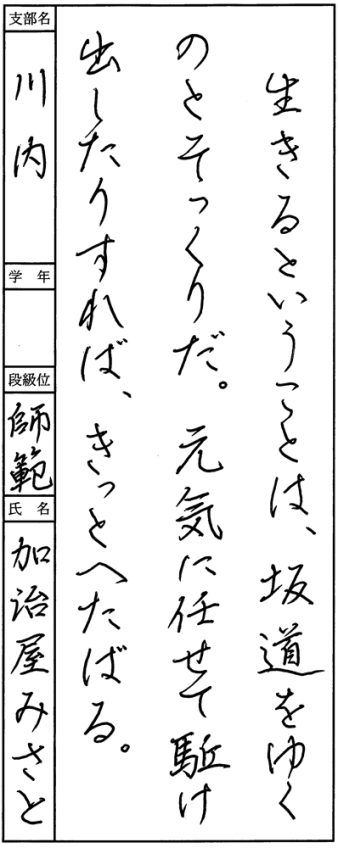 生きるということは、坂道をゆく
のとそっくりだ。元気に任せて駈け
出したりすれば、きっとへたばる。
支部名
川内
学年
段級位
師範
氏名
加治屋みさと